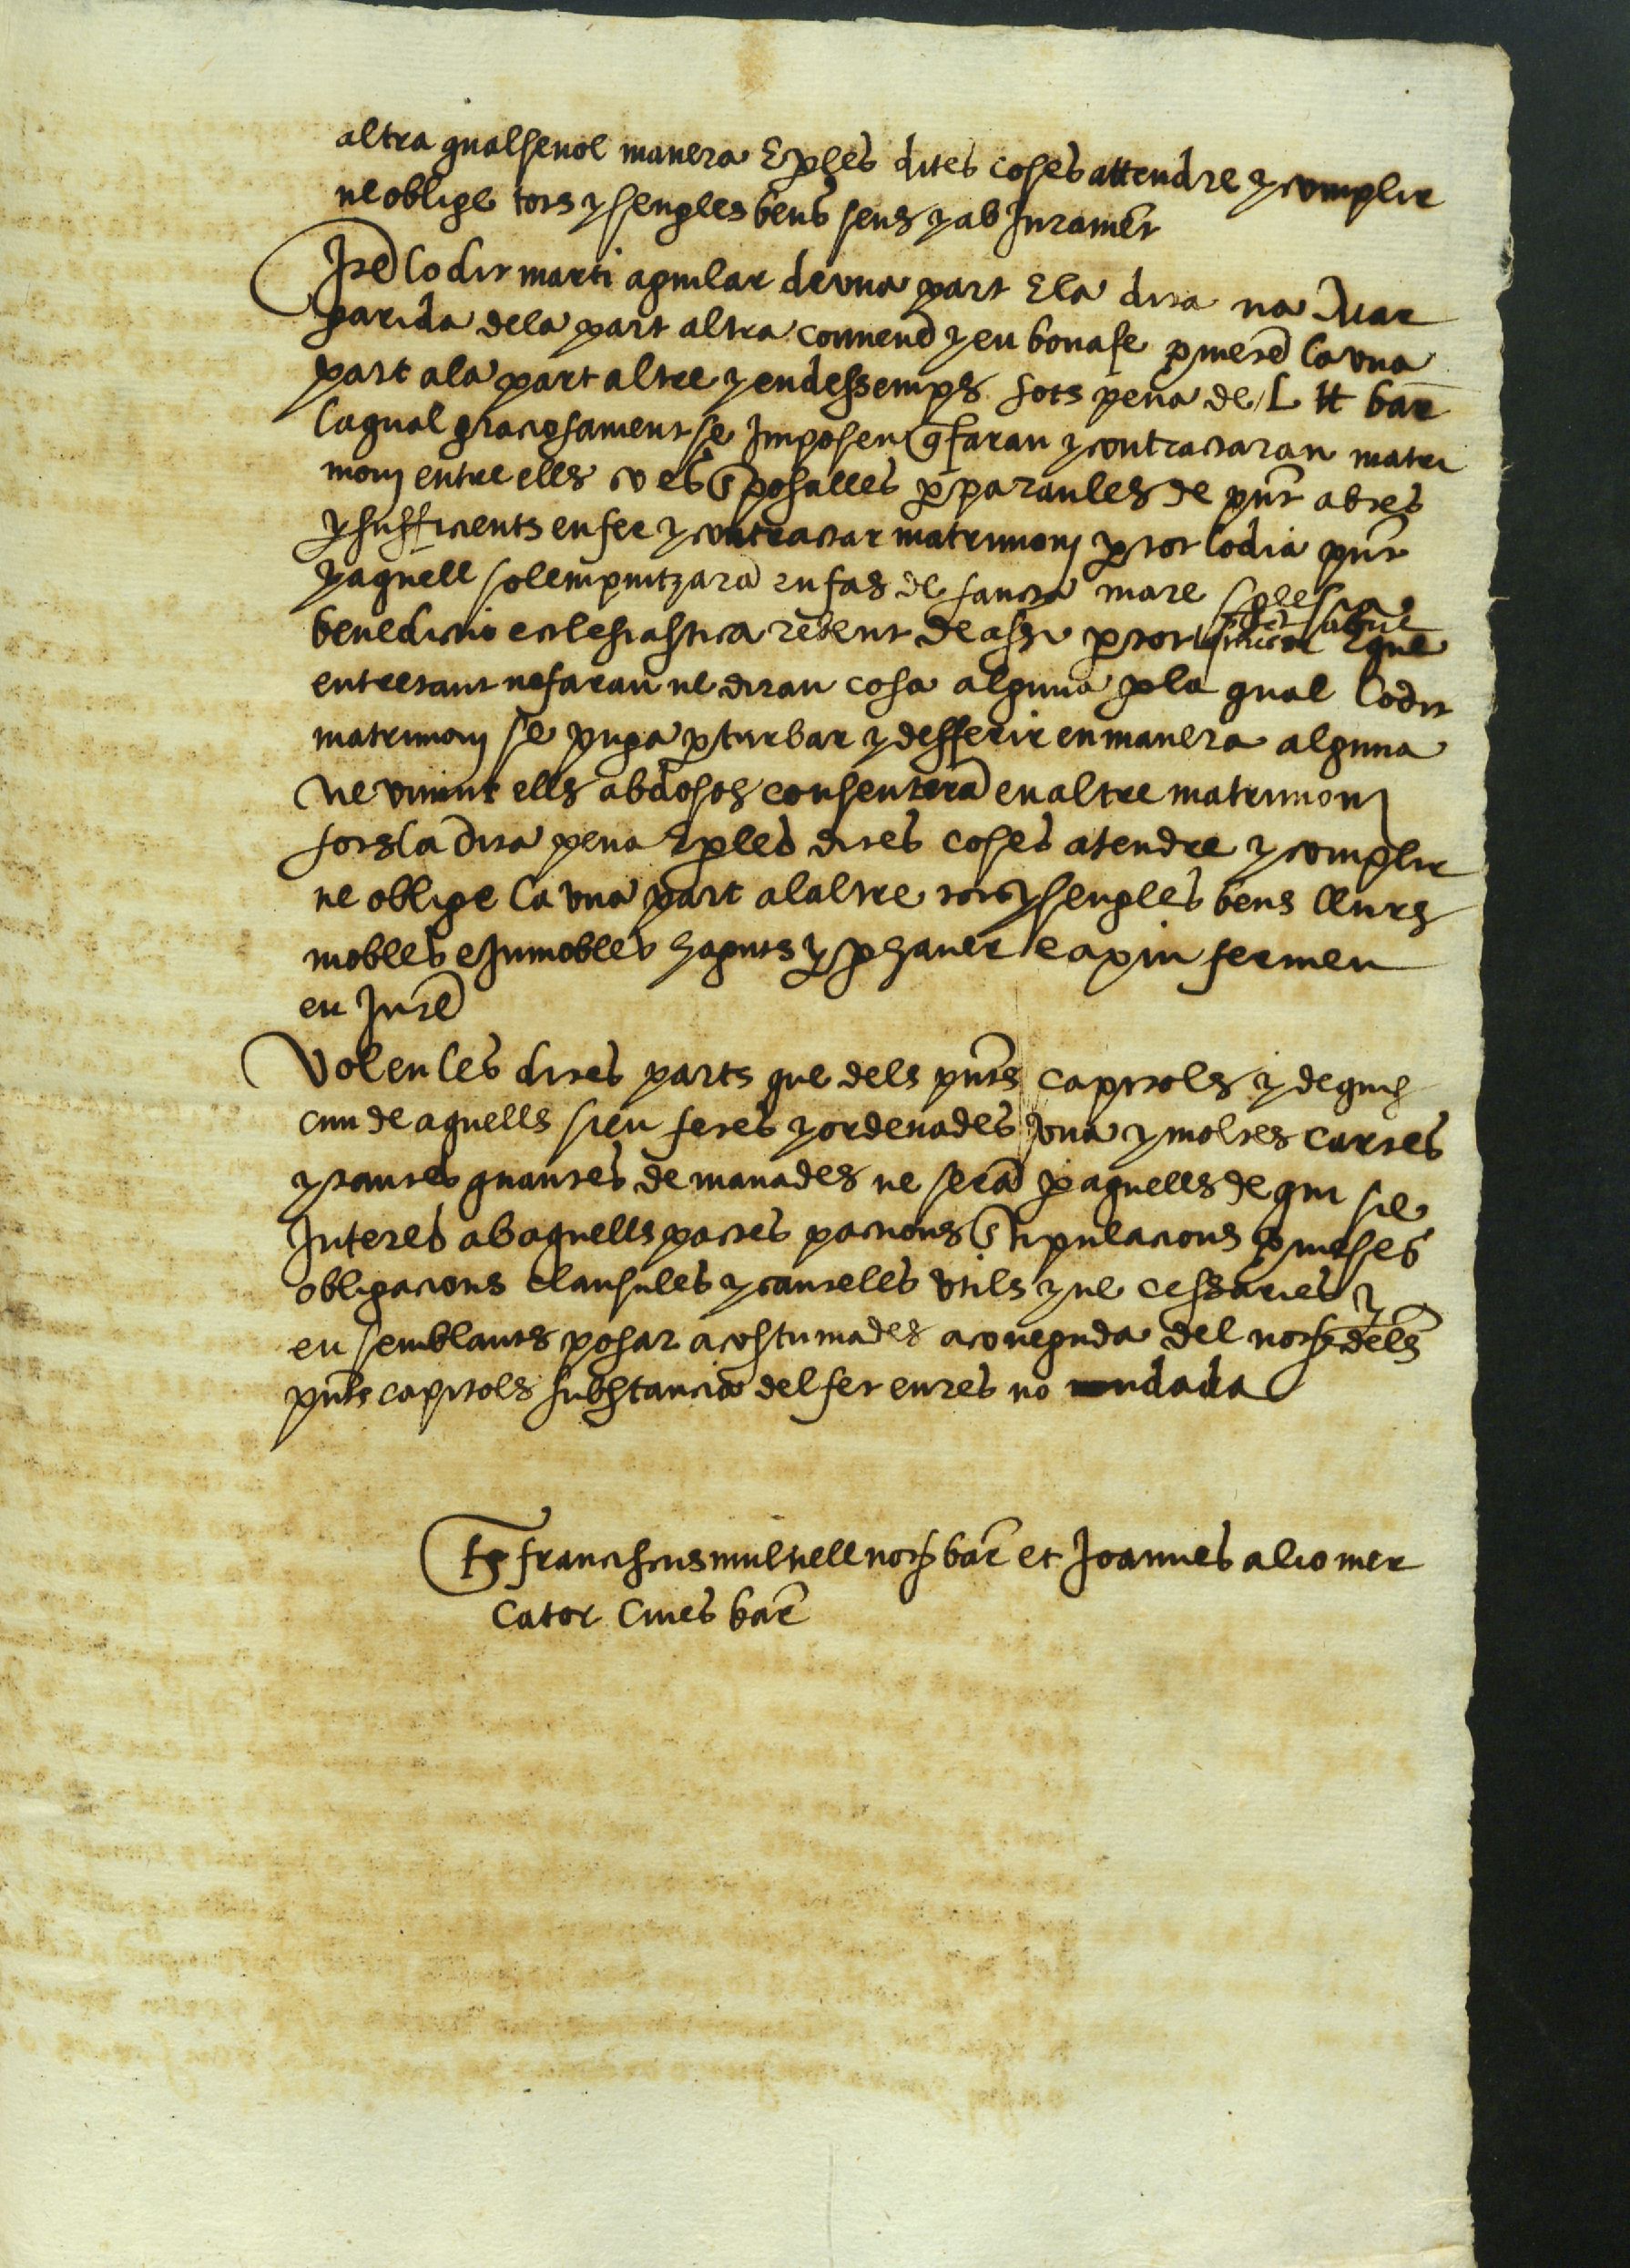 altra qualsevol manera E ples dites coses attendre y complir
ne oblige tots y sengles bens seus y ab Jurament
Ite lo dit marti aguilar de vna part E la dita na Mar
garida dela part altra convene y en bona fe pmete la vna
part ala part altre y endessemps sots pena de L ℔ bar
la qual graciosament se Imposen q faran y contractaran matri
moni entre ells y esposalles p paraules de pnt abtes
y sufficients en fer y contractar matrimoni p tot lo dia pnt
y aquell solempnitzara en fas de sancta mare sglesia
benedictio eclesiastica rebent de assi p tot E que
entretant no faran ne diran cosa alguna p la qual lo dit
matrimoni se puga pturbar y defferir en manera alguna
Ne vivint ells abdosos consentera en altre matrimoni
sots la dita pena E ples dites coses atendre y complir
ne oblige la vna part alaltre tots y sengles bens llurs
mobles e Inmobles haguts y p haver e axin fermen
en Jure
Volen les dites parts que dels pnts capitols y de quis
cun de aquells sien fetes y ordenades vna y moltes cartes
y tantes quantes demanades ne sera p aquells de qui sie
Interes ab aquells pactes pactions stipulacions pmeses
obligacions clausules y cauteles vtils y ne cessaries y
en semblants posar acostumades a coneguda del not dels
pnts capitols substancia del fet en res no mudada
Ts franciscus mulnell not bar et Joannes alio mer
cator Cives bar